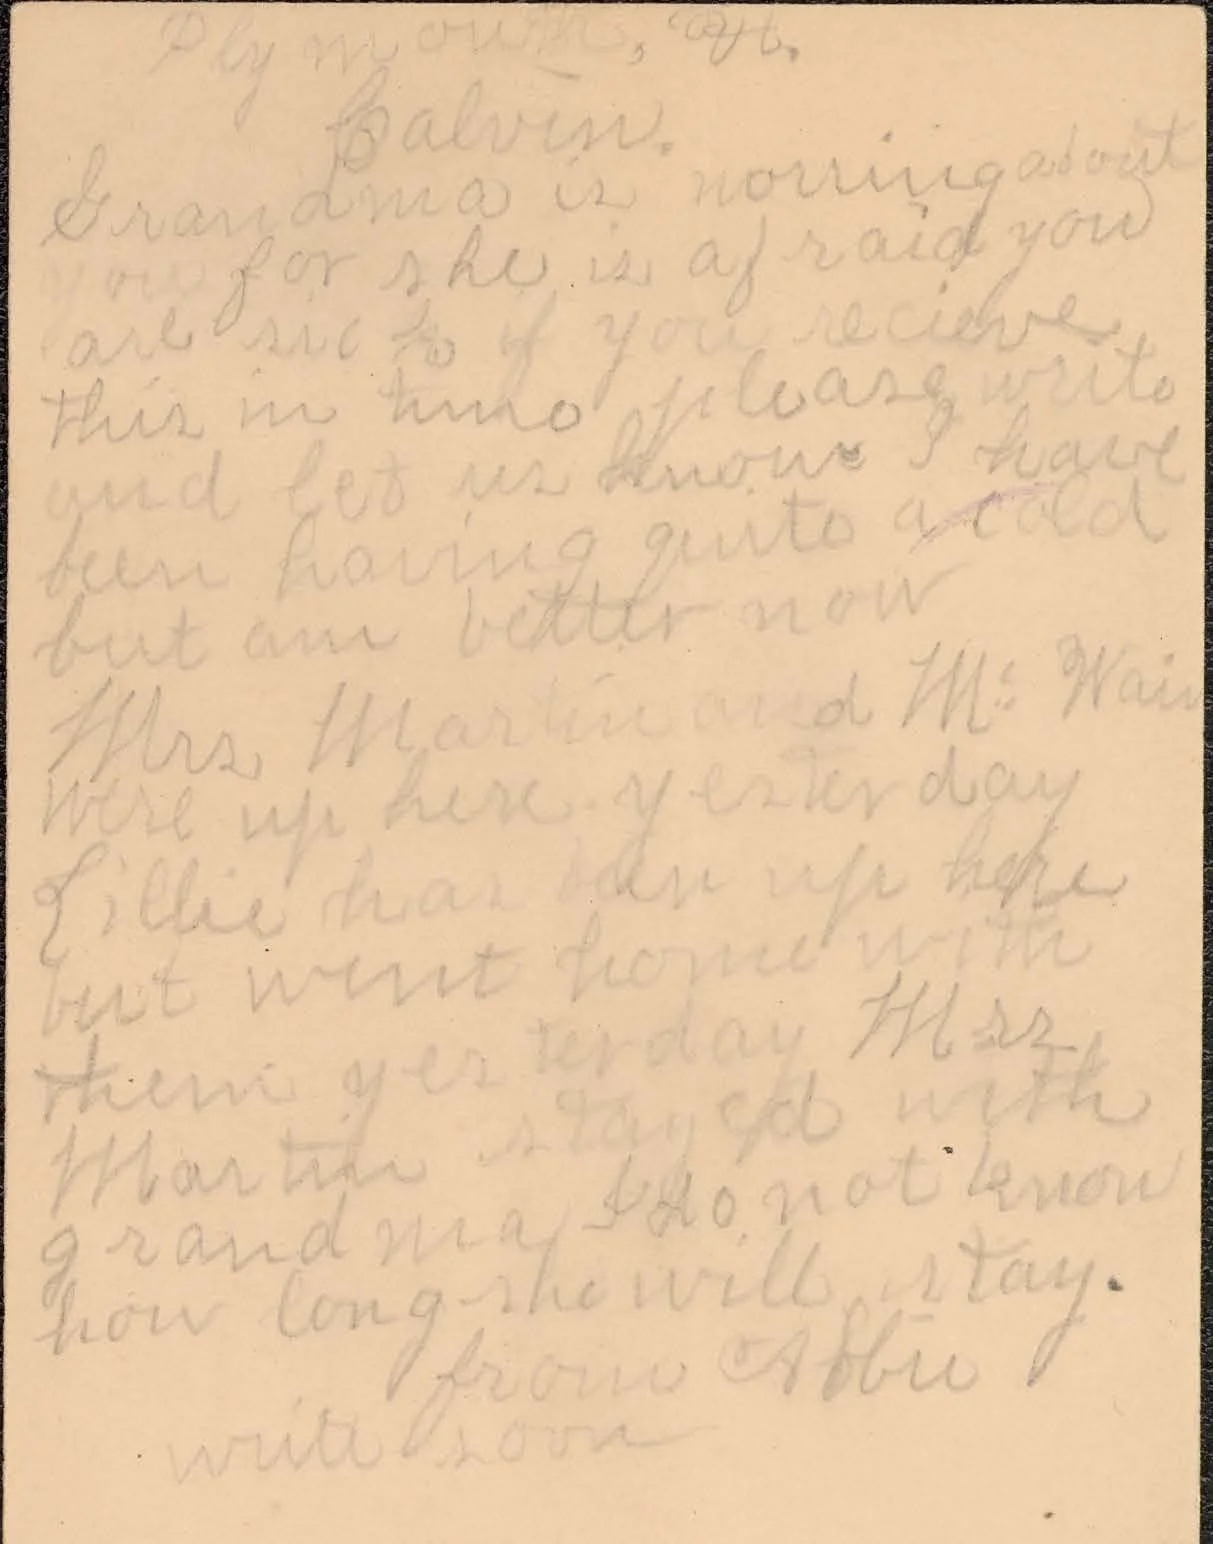 Plymouth, Vt.
Calvin.
Grandma is worring about
you for she is afraid you
are sick if you recieve
this in time please write
and let us know I have
been having quite a cold
but am better now
Mrs Martin and Mc Wain
were up here yesterday
Lillie has been up here
but went home with
them yesterday Mrs
Martin stayed with
grandma I do not know
how long she will stay.
from Abbie
write soon